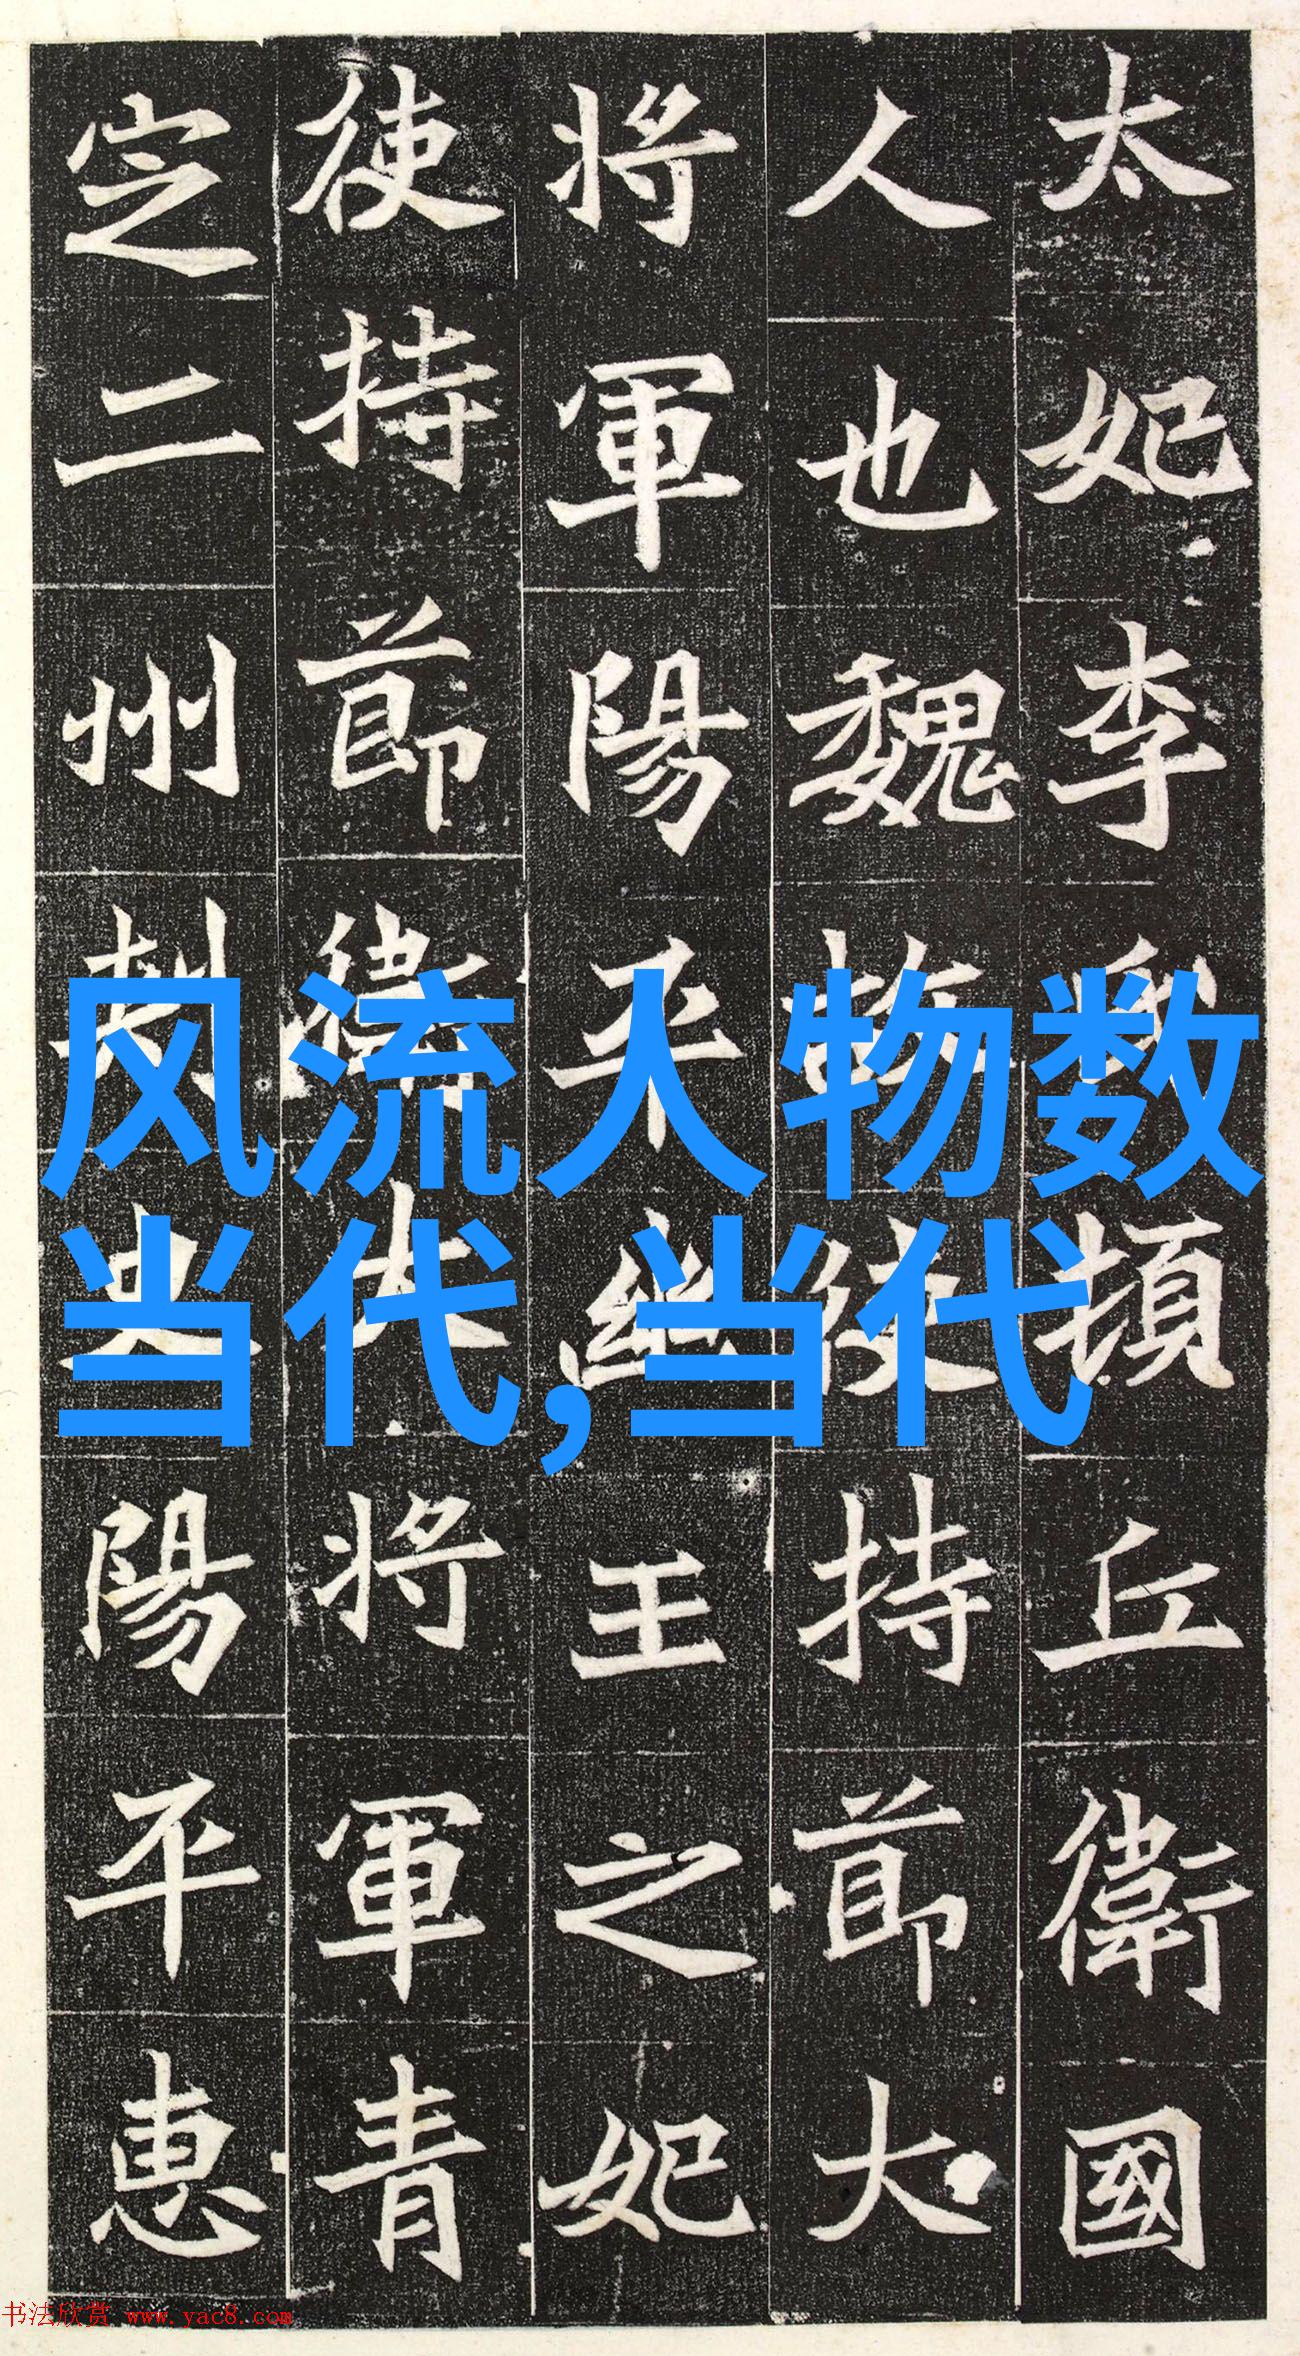 太妃李氏頓丘衛國
人也魏故使持節大
將軍陽平幽王之妃
使持節衛大將軍青
定二州刺史陽平惠
风流人物数
当代,当代
书法欣赏 www.yac8.com